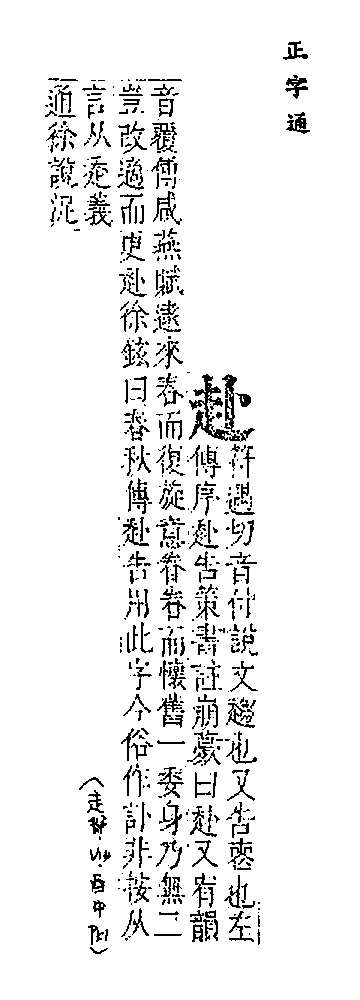 正字通
赴
符遇切音付說文趨也又告喪也左
傳序赴告策書註崩薨曰赴又宥韻
音覆傅咸燕賦逮來春而復旋意眷眷而懷舊一委身乃無二
豈改適而更赴徐鉉曰春秋傳赴告用此字今俗作訃非按从
言从走義
通徐說泥